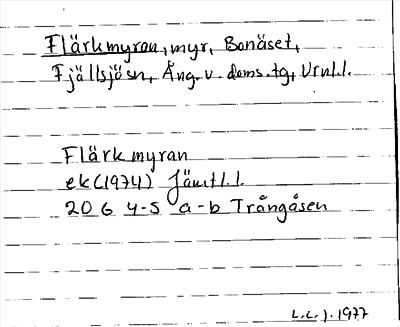 Flärkmyran, myr, Bonäset,
Fjällsjösn, Ång. v. doms.tg, Vrnl.l.
Flärkmyran
ek(1974) Jämtl.l.
20 G 4-5 a-b Trångåsen
L.L.J. 1977